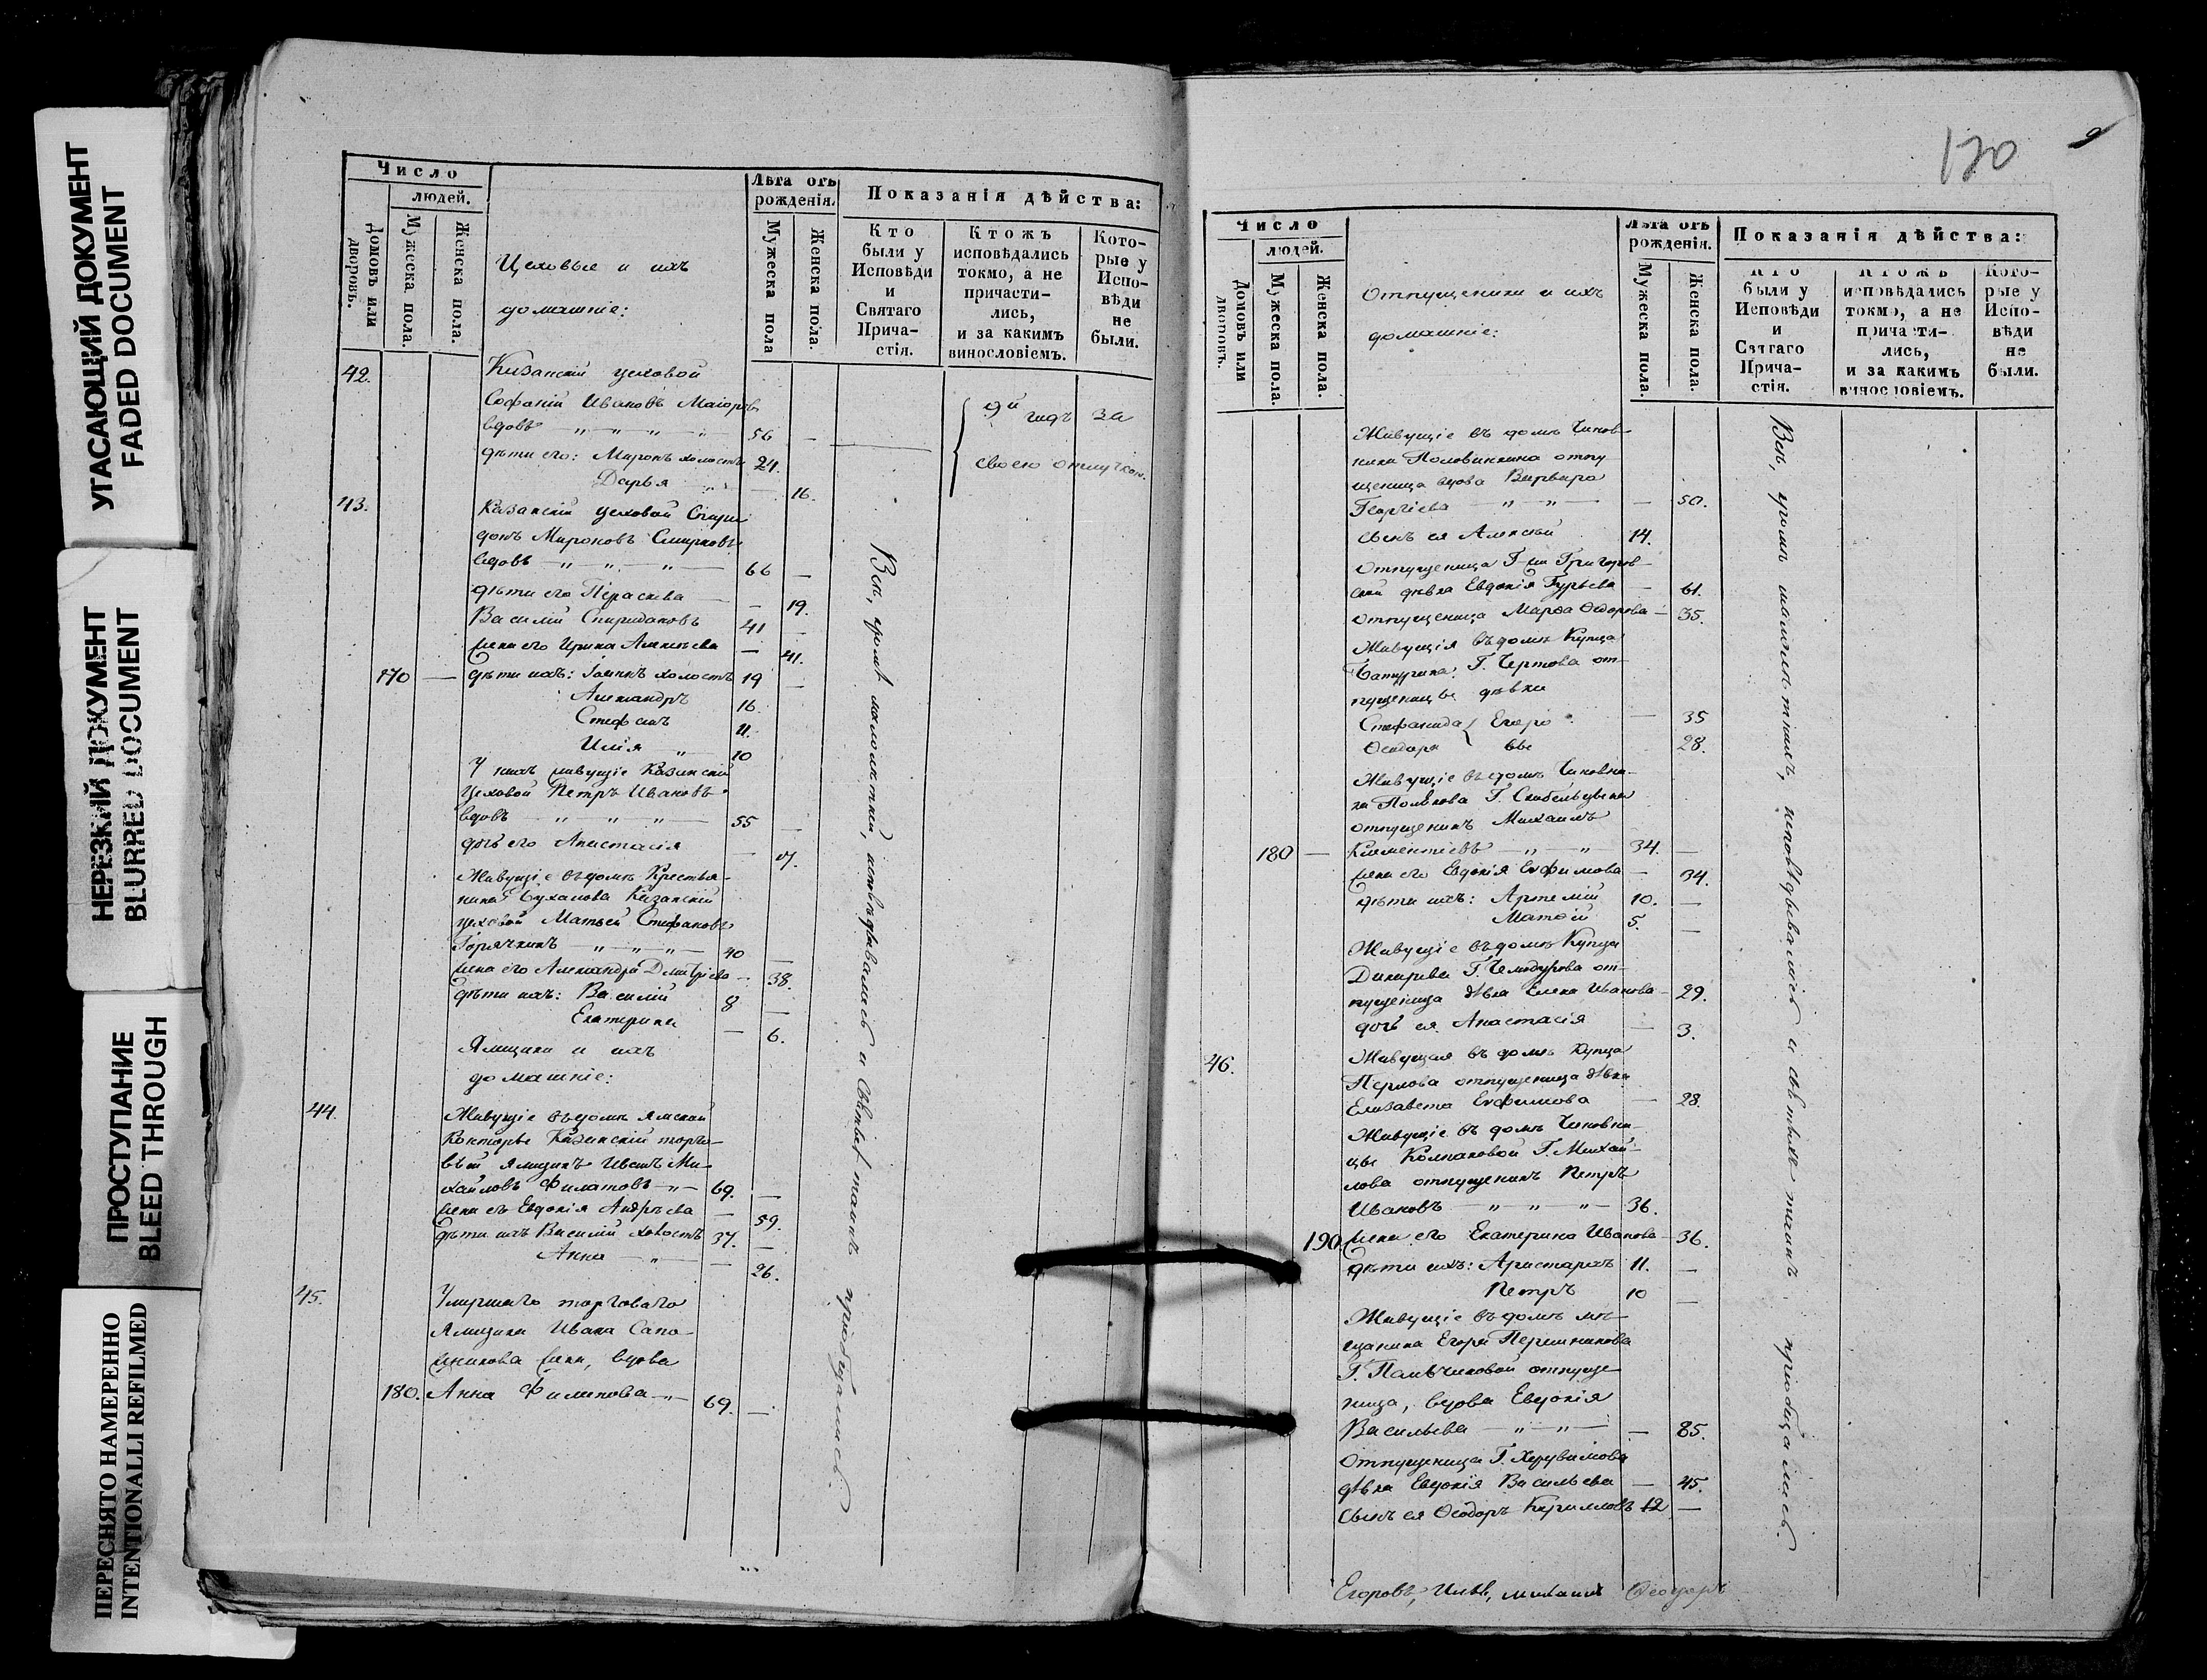 УГАСАЮЩИЙ ДОКУМЕНТ
FADED DOCUMENT
НЕРЕЗКИЙ ДОКУМЕНТ
BLURRED DOCUMENT
ПРОСТУПАНИЕ
BLEED THROUGH
ПЕРЕСНЯТО НАМЕРЕННО
INTENTIONALLI REFILMED
Число
людей.
Домовъ или дворовъ.
Мужеска пола.
Женска пола.
Цеховые и ихъ
домашніе:
Лѣта отъ
рожденія.
Мужеска пола
Женска пола.
Показанія дѣйства:
Кто
были у
Исповѣди
и
Святаго
Прича-
стія.
Ктожъ
исповѣдались
токмо, а не
причасти-
лись,
и за какимъ
винословіемъ.
Кото-
рые у
Испо-
вѣди
не
были.
42. Казанскій цеховой
Софоній Ивановъ Маіоровъ
вдовъ 56 —
дѣти его: Миронъ холостъ 24.
Дарья — 16.
й годъ за
своею отлучкою.
43. Казанскій цеховой Спири
донъ Мироновъ Смирновъ
вдовъ 66 —
дѣти его Параскева — 19.
Василій Спиридоновъ 41 —
жена его Ирина Алексѣева — 41.
170 — дѣти ихъ: Іоаннъ холостъ 19 —
Александръ 16.
Стефанъ 11.
Илія 10
У нихъ живущіе Казанскій
Цеховой Петръ Ивановъ
вдовъ 55 —
дочь его Анастасія — 17.
Живущіе въ домѣ Крестья-
нина Буханова Казанскій
цеховой Матвей Стефановъ
Горячкинъ 40 —
жена его Александра Дмитріева — 38.
дѣти ихъ: Василій 8 —
Екатерина — 6.
Ямщики и ихъ
домашніе:
44. Живущіе въ домѣ Ямской
Конторы Казанскій торго-
вый ямщикъ Иванъ Ми-
хайловъ Филатовъ 69. —
жена его Евдокія Андреева — 59.
дѣти ихъ Василій холостъ 37. —
Анна — 26.
45. Умершаго торговаго
Ямщика Ивана Сапо-
жникова жена, вдова
180. Анна Филипова 69. —
Всѣ, кромѣ малолѣтней, исповѣдывались и Святыхъ таинъ пріобщались.
120
9
Число
людей.
Домовъ или дворовъ.
Мужеска пола.
Женска пола.
Отпущеники и ихъ
домашніе:
Лѣта отъ
рожденія.
Мужеска пола.
Женска пола.
Показанія дѣйства:
Кто
были у
Исповѣди
и
Святаго
Прича-
стія.
Ктожъ
исповѣдались
токмо, а не
причасти-
лись,
и за какимъ
винословіемъ.
Кото-
рые у
Испо-
вѣди
не
были.
Живущіе въ домѣ Чинов-
ника Половинкина отпу
щеница вдова Варвара
Георгіева — 50.
сынъ ея Алексѣй 14.
Отпущеница Г-жи Григоров-
ской дѣвка Евдокія Гурьева — 61.
отпущеница Марѳа Ѳедорова — 35.
Живущія въ домѣ Купца
Батурина, Г. Чертова от-
пущеницы дѣвки
Стефанида Егоро — 35
Ѳеодора вы 28.
Живущіе въ домѣ Чиновни-
ка Полѣнова Г. Скабельцына
отпущеникъ Михаилъ
180 — Климентіевъ 34. —
жена его Евдокія Евфимова — 34.
дѣти ихъ: Артемій 10. —
Матѳій 5. —
Живущіе въ домѣ Купца
Дикарева Г. Чемодурова от-
пущеница дѣвка Елена Иванова — 29.
дочь ея Анастасія — 3.
46. Живущая въ домѣ Купца
Перлова отпущеница дѣвка
Елизавета Евфимова — 28.
Живущіе въ домѣ Чиновни-
цы Колпаковой Г. Михай-
лова отпущеникъ Петръ
Ивановъ 36.
190. жена его Екатерина Иванова — 36.
дѣти ихъ: Аристархъ 11. —
Петръ 10 —
Живущіе въ домѣ мѣ-
щанина Егора Першникова
Г. Пальчиковой отпуще
ница, вдова Евдокія
Васильева — 85.
Отпущеница Г. Херувимова
дѣвка Евдокія Васильева — 45.
Сынъ ея Ѳеодоръ Кириловъ 12 —
Всѣ, кромѣ малолѣтнихъ, исповѣдывались и святыхъ таинъ пріобщались.
Егоровъ,